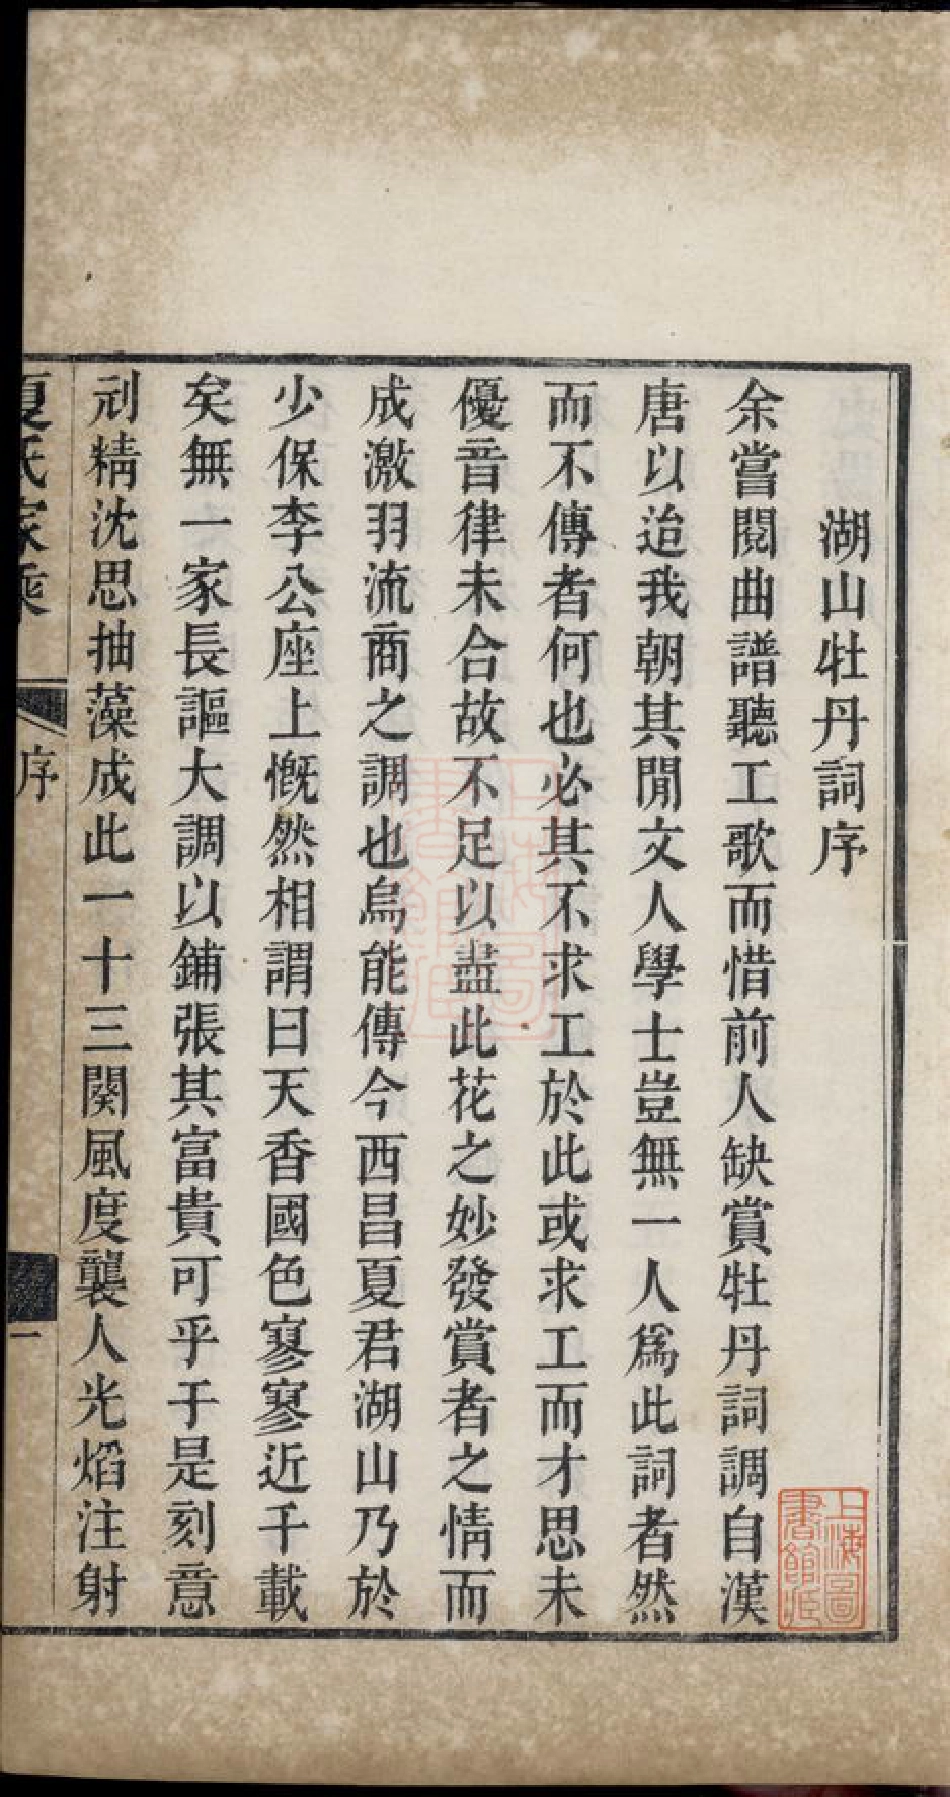 湖山牡丹詞序
余嘗閱曲譜聽工歌而惜前人缺賞牡丹詞調自漢
唐以迨我朝其閒文人學士豈無一人爲此詞者然
而不傳者何也必其不求工於此或求工而才思未
優音律未合故不足以盡此花之妙發賞者之情而
成激羽流商之調也烏能傳今西昌夏君湖山乃於
少保李公座上慨然相謂曰天香國色寥寥近千載
矣無一家長謳大調以鋪張其富貴可乎于是刻意
刓精沈思抽藻成此一十三闋風度襲人光焰注射
夏氏家乘
序
一
上海圖書館藏
上海圖書館藏